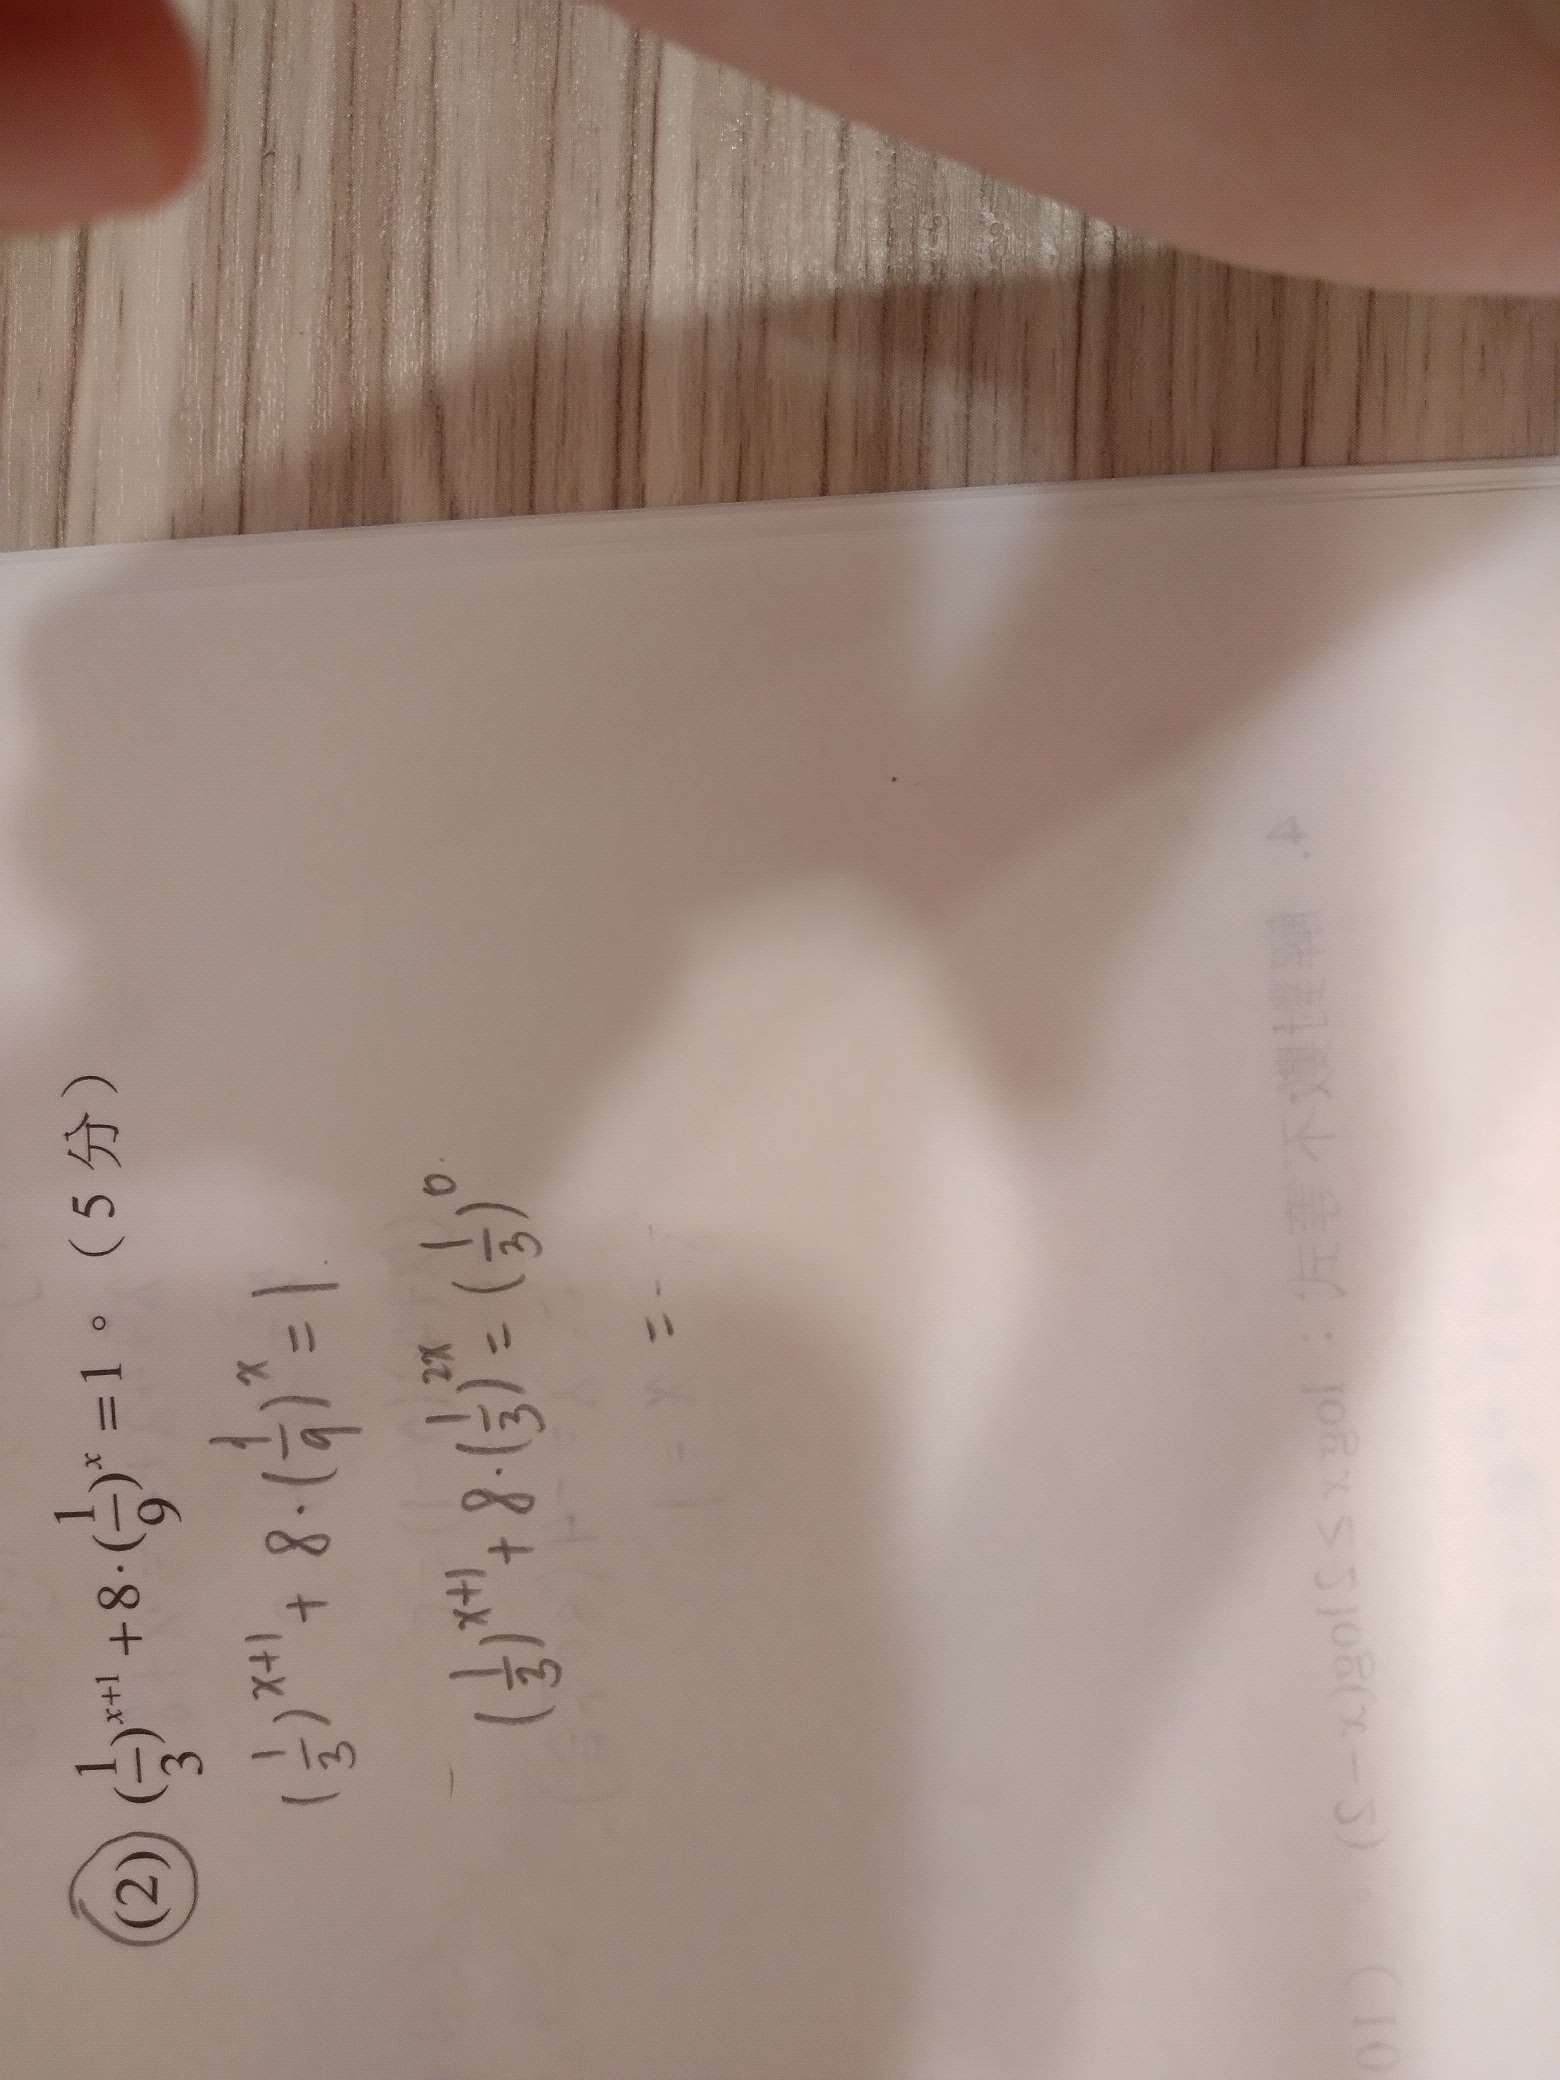 (2) (1/3)^{x+1}+8·(1/9)^x=1。（5分）
(1/3)^{x+1} + 8·(1/9)^x = 1
(1/3)^{x+1} + 8·(1/3)^{2x} = (1/3)^0
=
4. 解對數不等式：logx≥2log(x−2)。（10